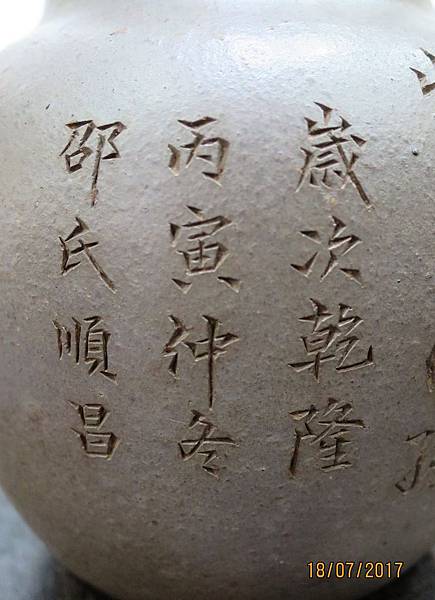 歲次乾隆
丙寅仲冬
邵氏順昌
18/07/2017